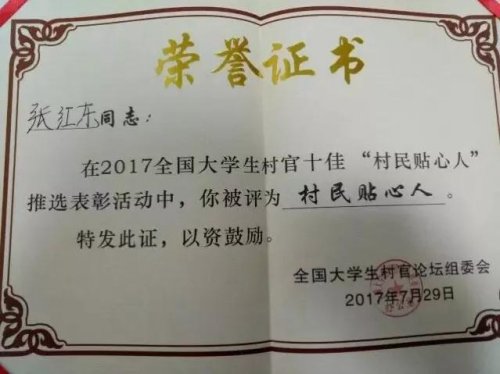 荣誉证书
张红东同志：
在2017全国大学生村官十佳“村民贴心人”
推选表彰活动中，你被评为 村民贴心人 。
特发此证，以资鼓励。
全国大学生村官论坛组委会
2017年7月29日